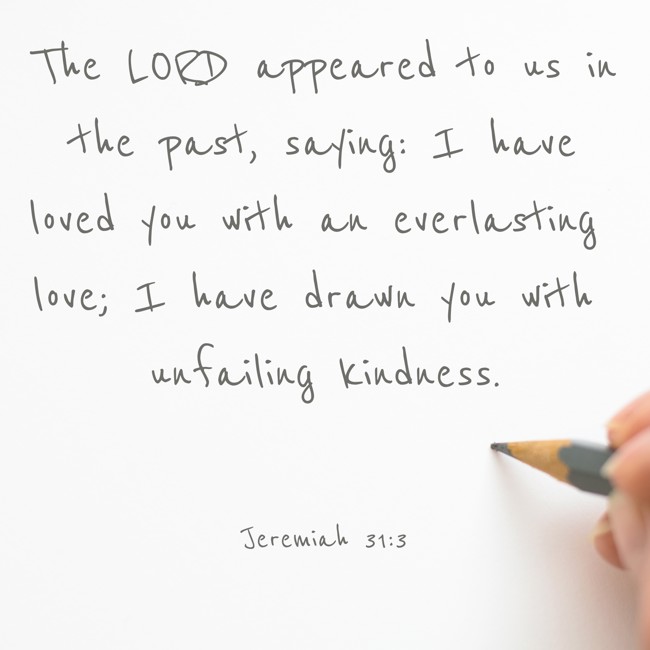 The LORD appeared to us in
the past, saying: I have
loved you with an everlasting
love; I have drawn you with
unfailing kindness.
Jeremiah 31:3